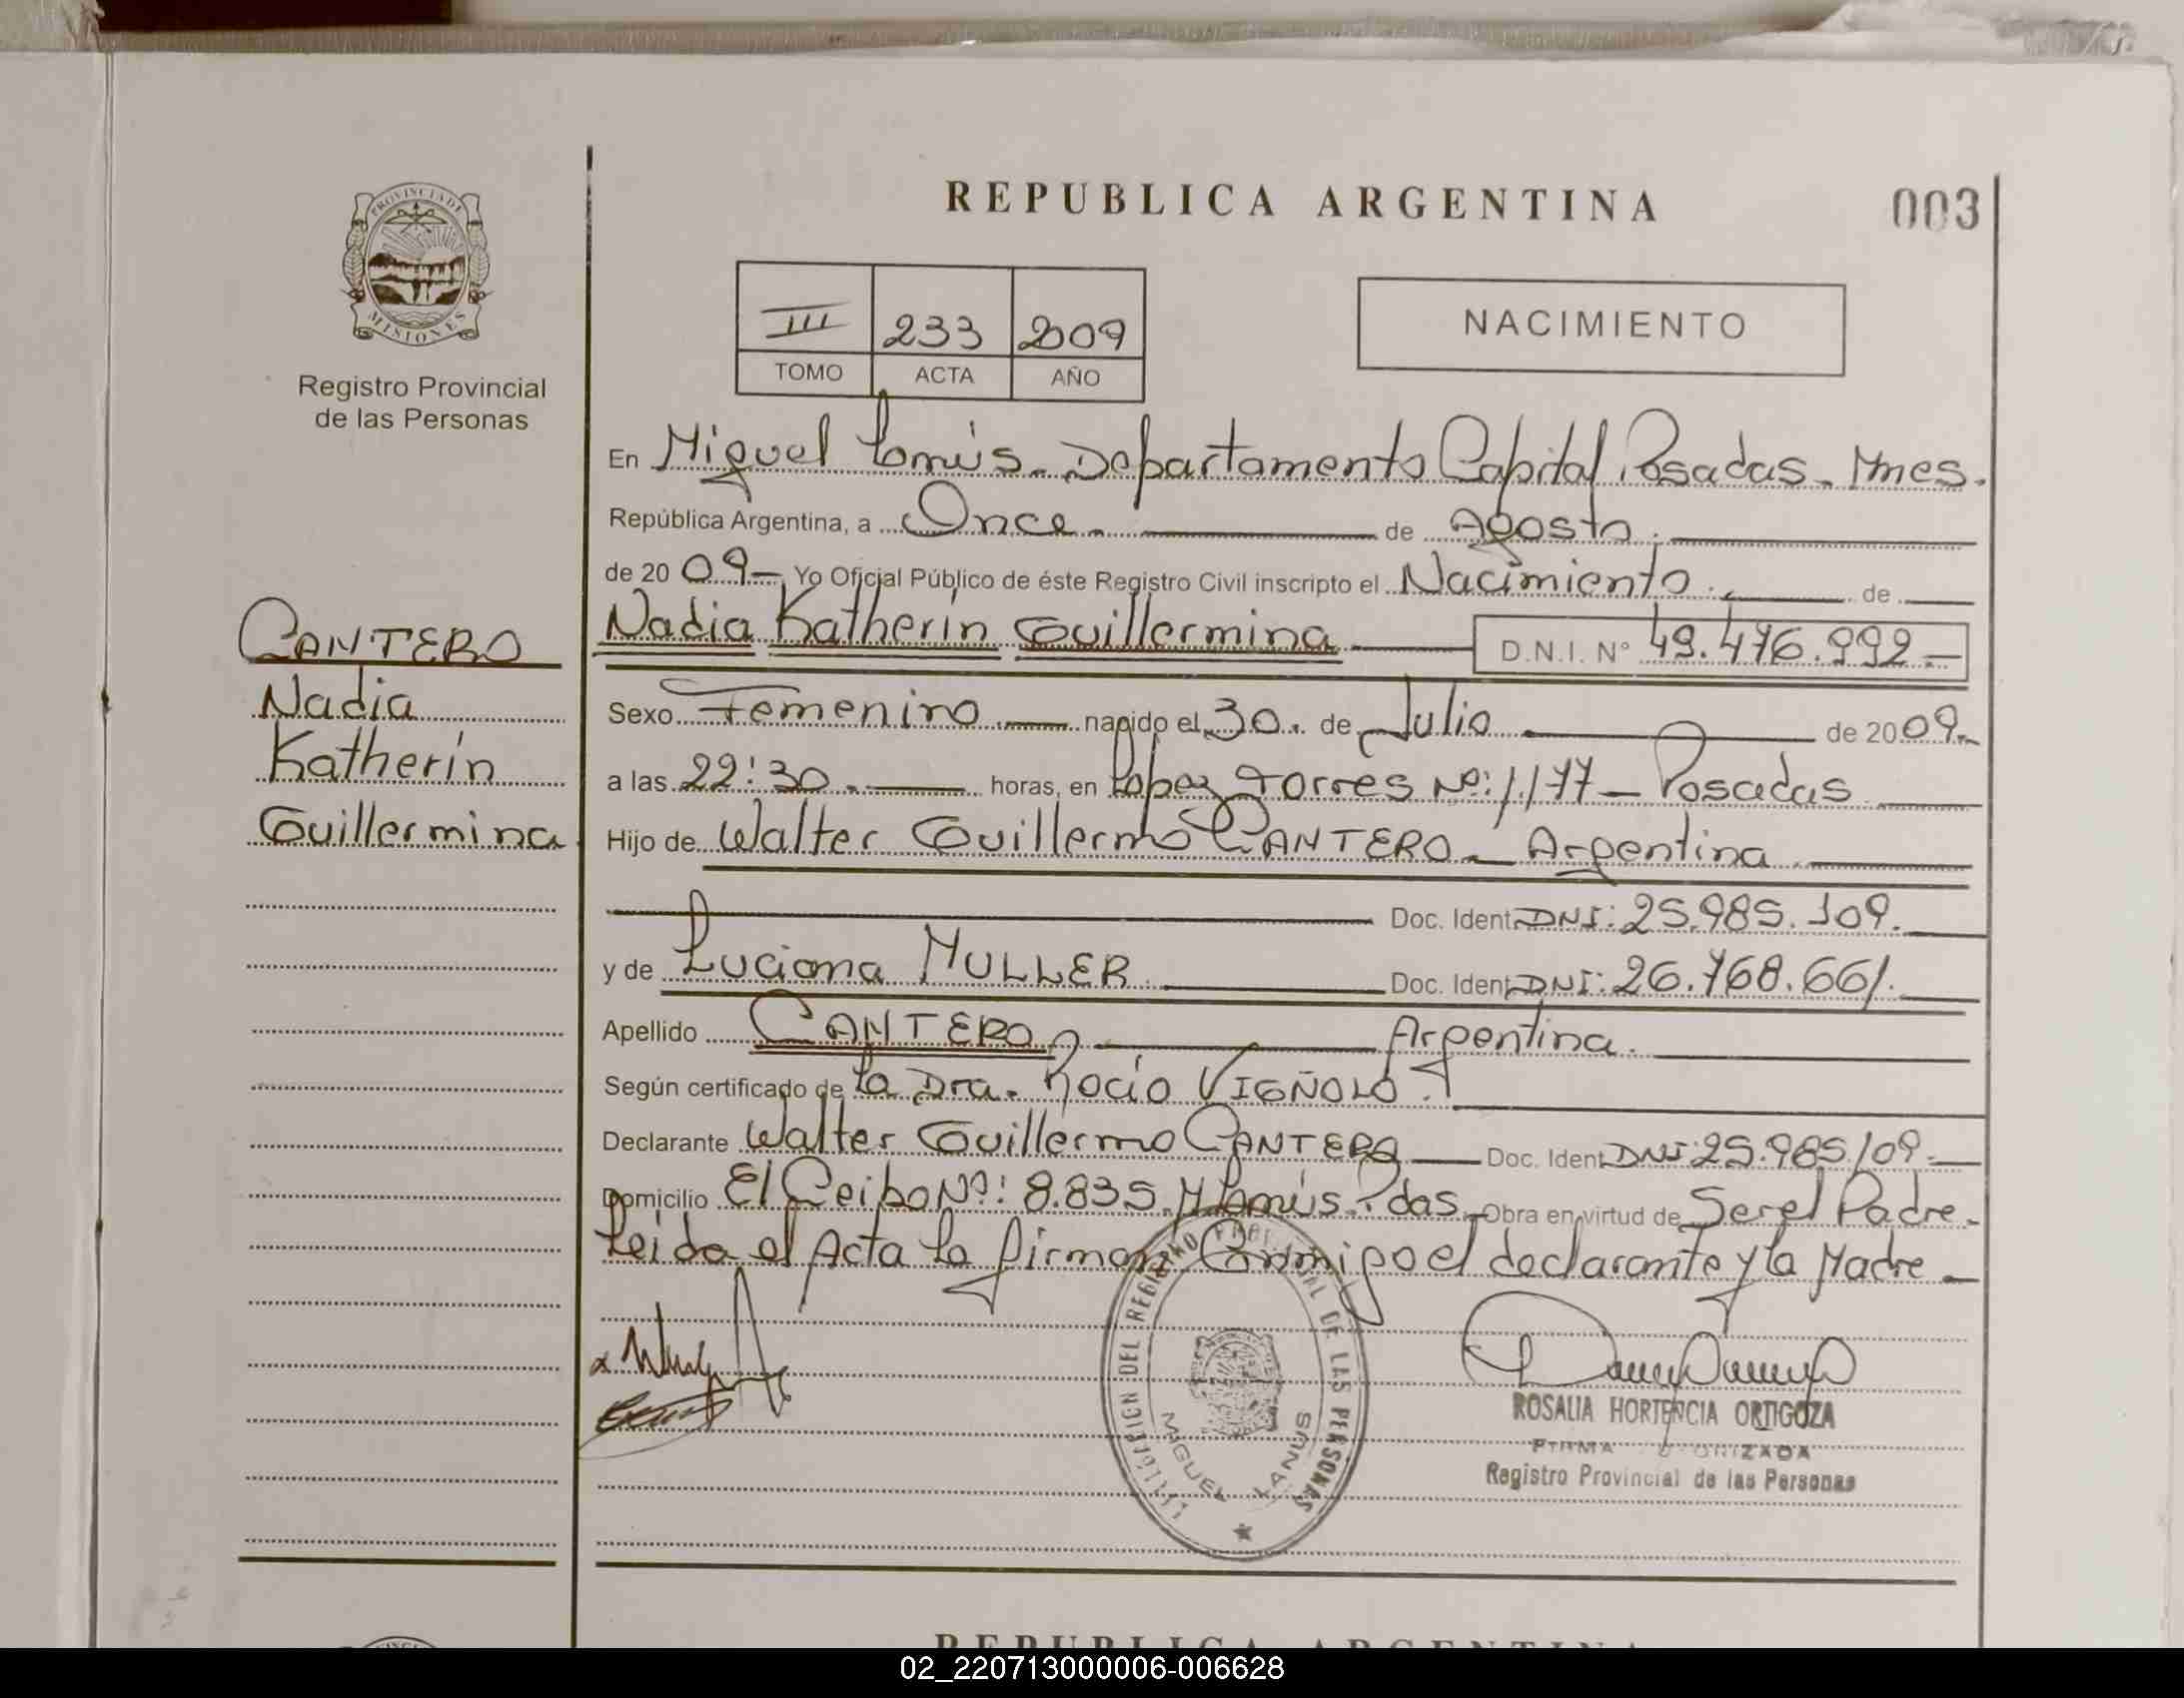 REPUBLICA ARGENTINA
003
PROVINCIA DE
MISIONES
Registro Provincial
de las Personas
III 233 2009
TOMO ACTA AÑO
NACIMIENTO
En Miguel Lanús. Departamento Capital Posadas. Mnes.
República Argentina, a Once. de Agosto.
de 20 09 Yo Oficial Público de éste Registro Civil inscripto el Nacimiento. de
Nadia Katherin Guillermina D.N.I. N° 49.476.992
Sexo Femenino nacido el 30. de Julio de 2009.
a las 22:30. horas, en Lopez Torres Nº: 1.177 - Posadas
Hijo de Walter Guillermo CANTERO - Argentina
Doc. Ident DNI: 25.985.109.
y de Luciana MULLER Doc. Ident DNI: 26.768.661.
Apellido CANTERO Argentina.
Según certificado de la Dra. Rocío VIGÑOLO.
Declarante Walter Guillermo CANTERO Doc. Ident DNI: 25.985.109.
Domicilio El Ceibo Nº: 8.835. M. Lanús. Pdas. Obra en virtud de Ser el Padre.
Leida el Acta la firman Conmigo el declarante y la Madre
CANTERO
Nadia
Katherin
Guillermina
DEL REGISTRO PROVINCIAL DE LAS PERSONAS
MIGUEL LANUS
ROSALIA HORTENCIA ORTIGOZA
FIRMA AUTORIZADA
Registro Provincial de las Personas
REPUBLICA ARGENTINA
02_220713000006-006628